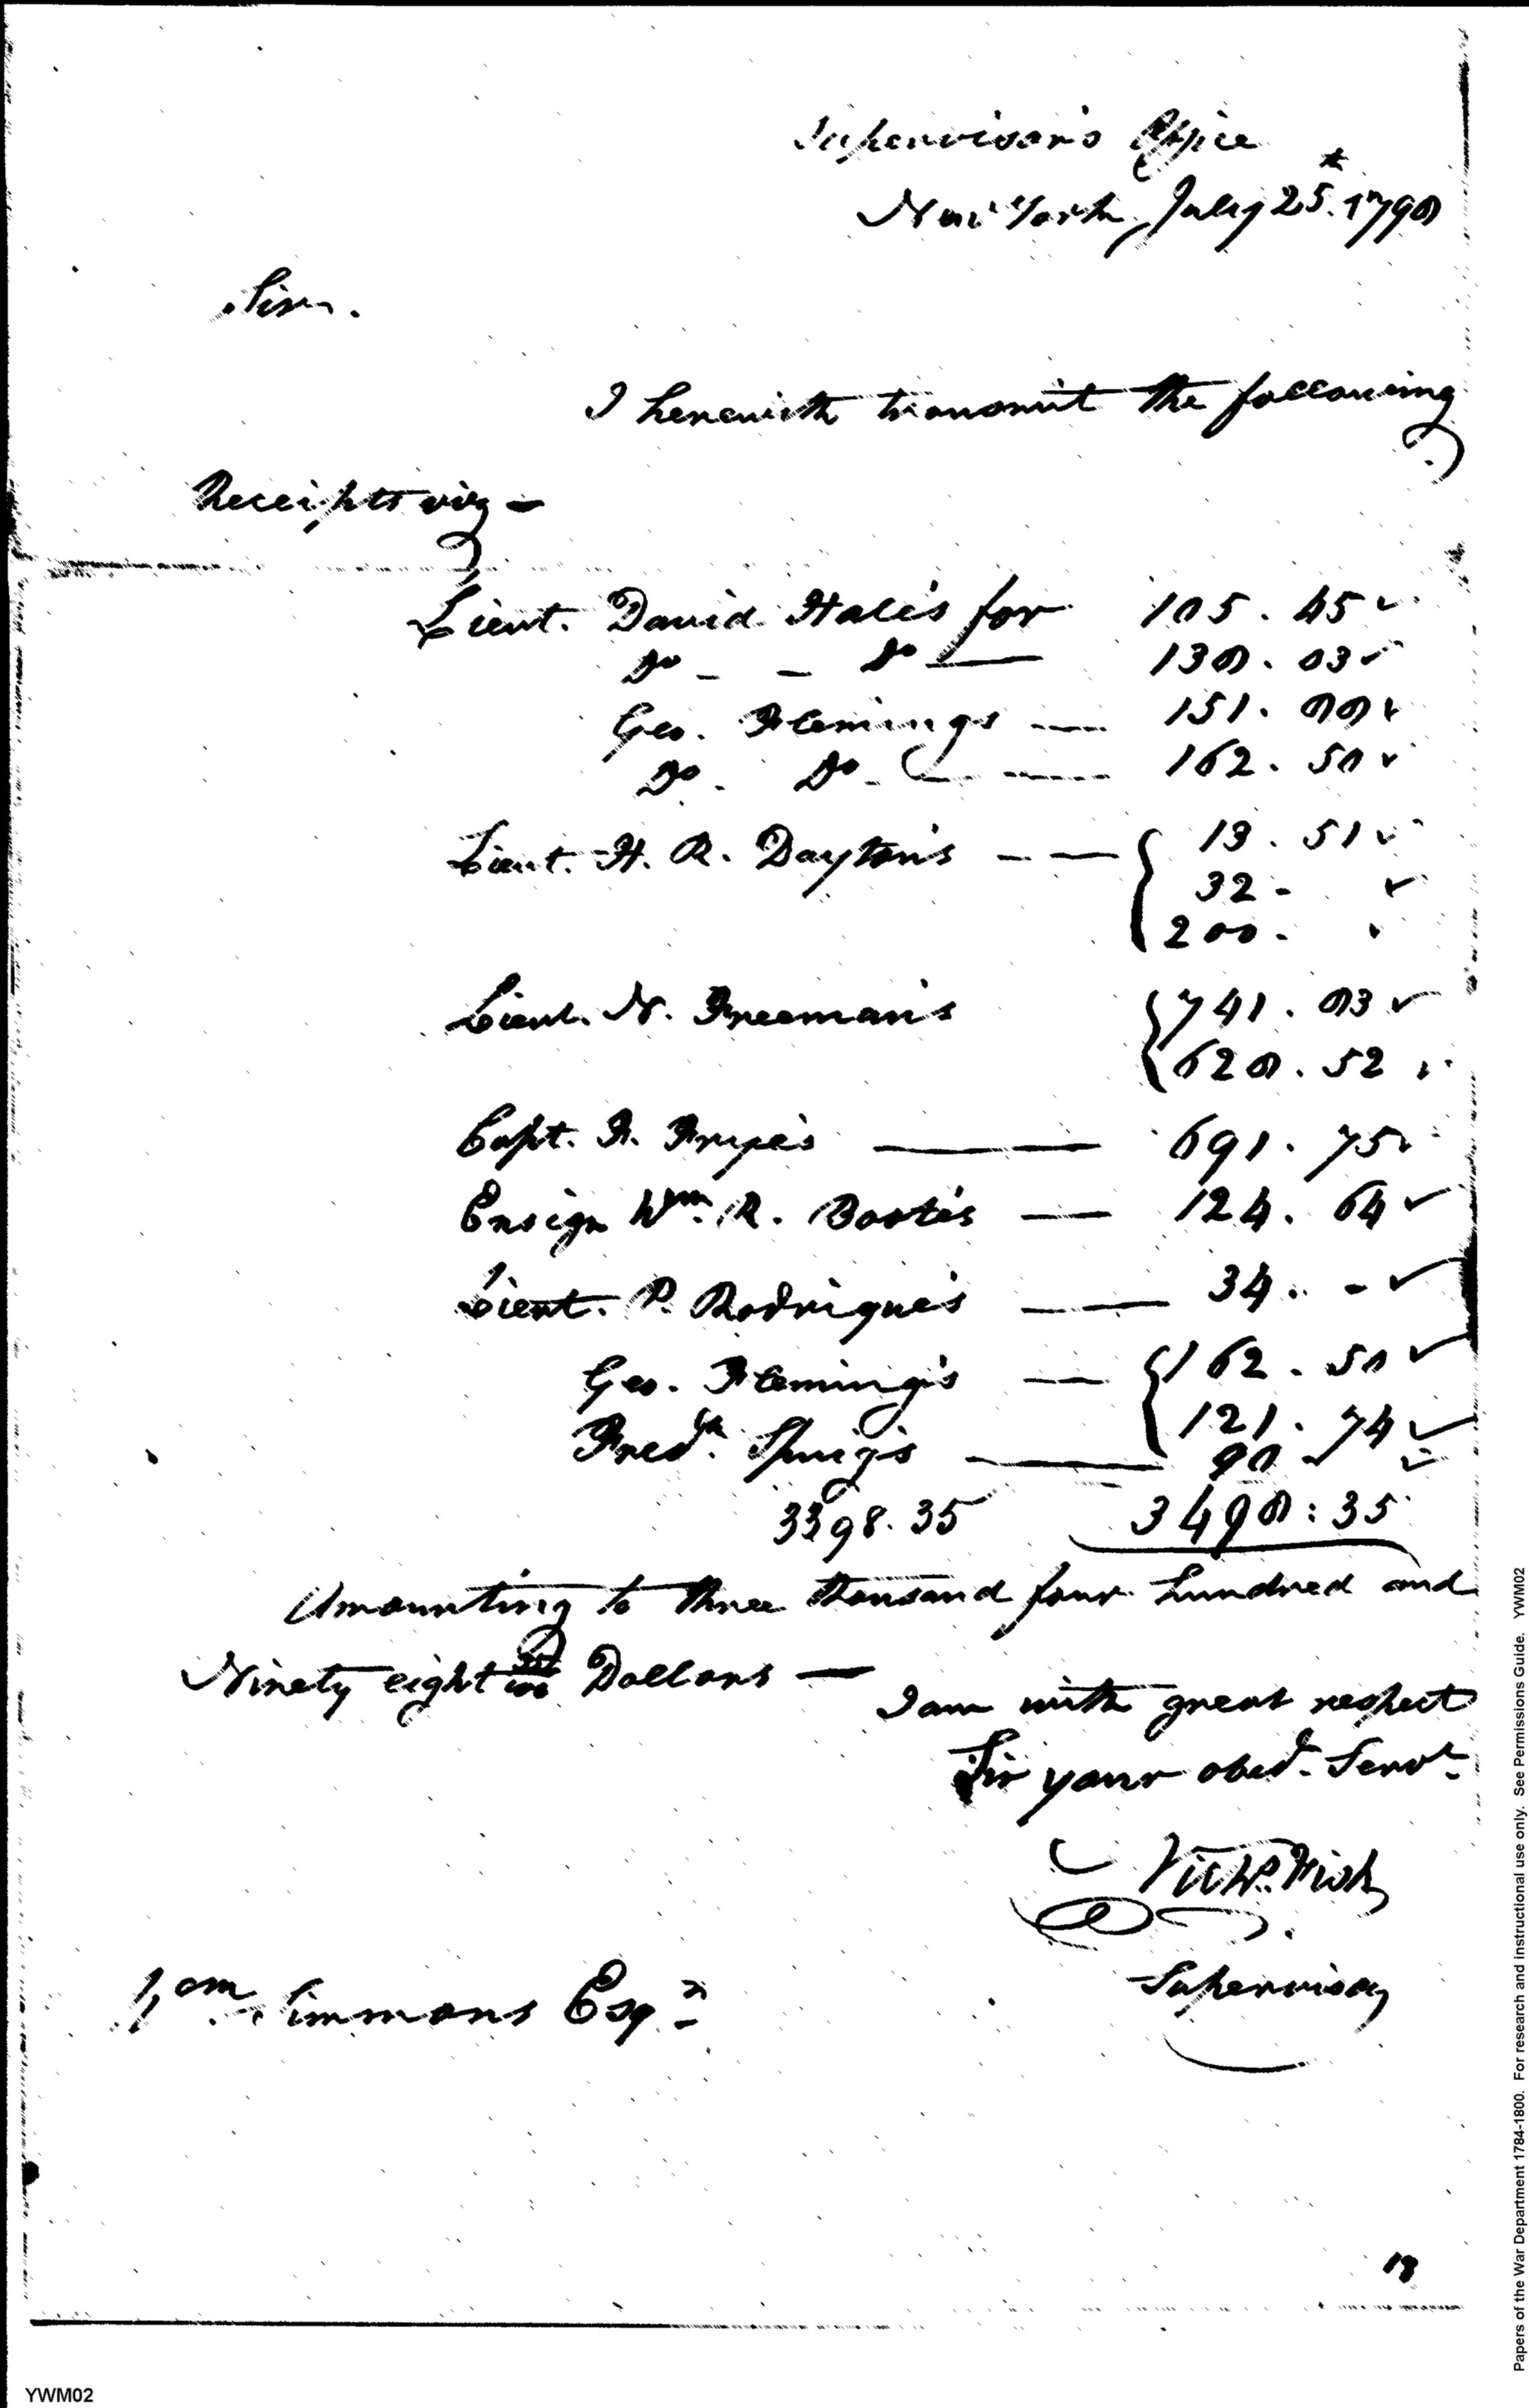 Supervisor's Office
New York, July 25. 1798
Sir.
I herewith transmit the following
Receipts viz -
Lieut. David Hale's for 105. 45
Do - - Do — 138. 03
Geo. Flemings — 151. 88
Do. Do - — 162. 50
Lieut. H. R. Dayton's — — 13. 51
32 -
200 -
Lieut. N. Freeman's 741. 83
628. 52
Capt. F. Frye's — 691. 75
Ensign Wm. R. Boote's — 124. 64
Lieut. P. Rodrigue's — 34. -
Geo. Fleming's — 162. 50
121. 74
Fredk. Spurig's — 90 -
3398.35 3498:35
Amounting to three thousand four hundred and
Ninety eight 35/100 Dollars —
I am with great respect
Sir your obed. Servt.
Nichs. Fish
Supervisor
Wm Simmons Esqr
18
YWM02
Papers of the War Department 1784-1800. For research and instructional use only. See Permissions Guide. YWM02